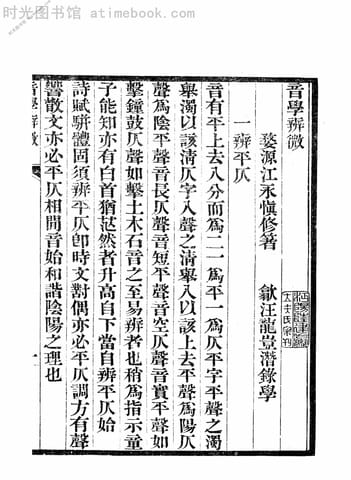 时光图书馆 - www.atimebook.com
音學辨微
婺源江永慎修著 歙汪龍豈潛錄學
一辨平仄
音有平上去入分而爲二一爲平一爲仄平字平聲之濁
舉濁以該清仄字入聲之清舉入以該上去平聲爲陽仄
聲爲陰平聲音長仄聲音短平聲音空仄聲音實平聲如
擊鐘鼓仄聲如擊土木石音之至易辨者也稍爲指示童
子能知亦有白首猶茫然者升高自下當自辨平仄始
詩賦駢體固須辨平仄卽時文對偶亦必平仄調方有聲
響散文亦必平仄相間音始和諧陰陽之理也
音學辨微
一